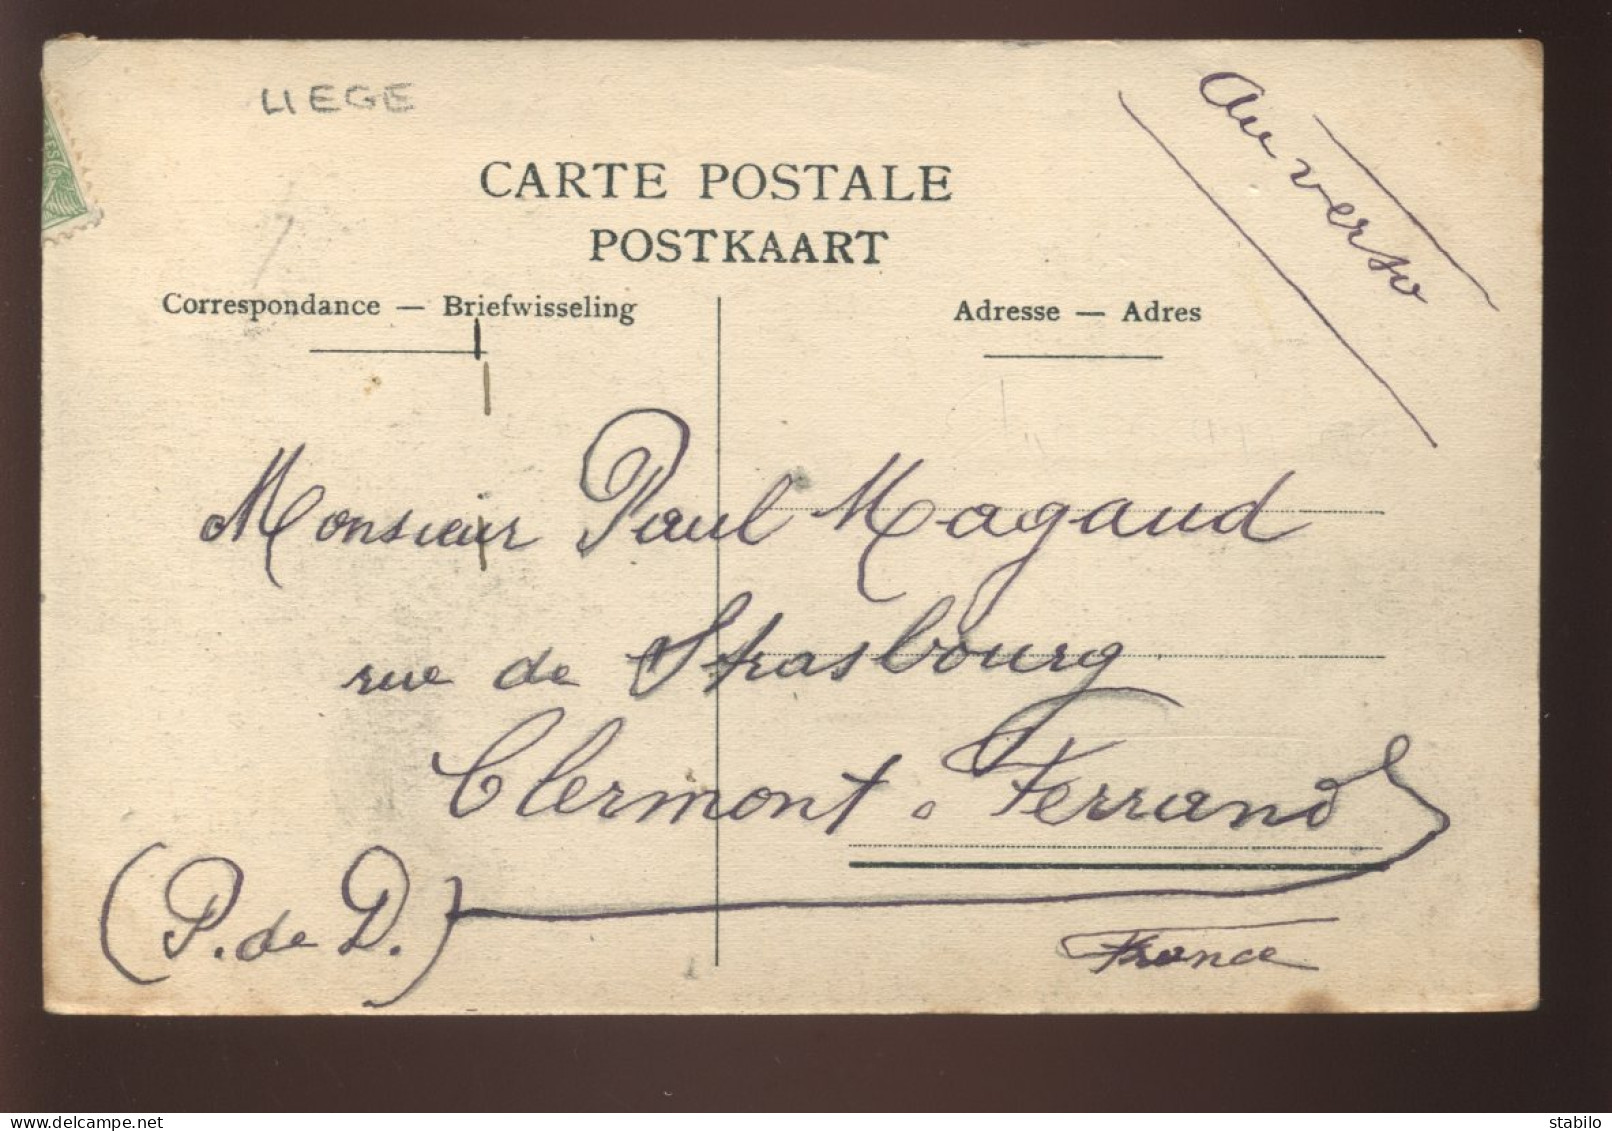 LIEGE
Au verso
CARTE POSTALE
POSTKAART
Correspondance — Briefwisseling
Adresse — Adres
Monsieur Paul Magaud
rue de Strasbourg
Clermont-Ferrand
(P. de D.)
France
stabilo
www.delcampe.net